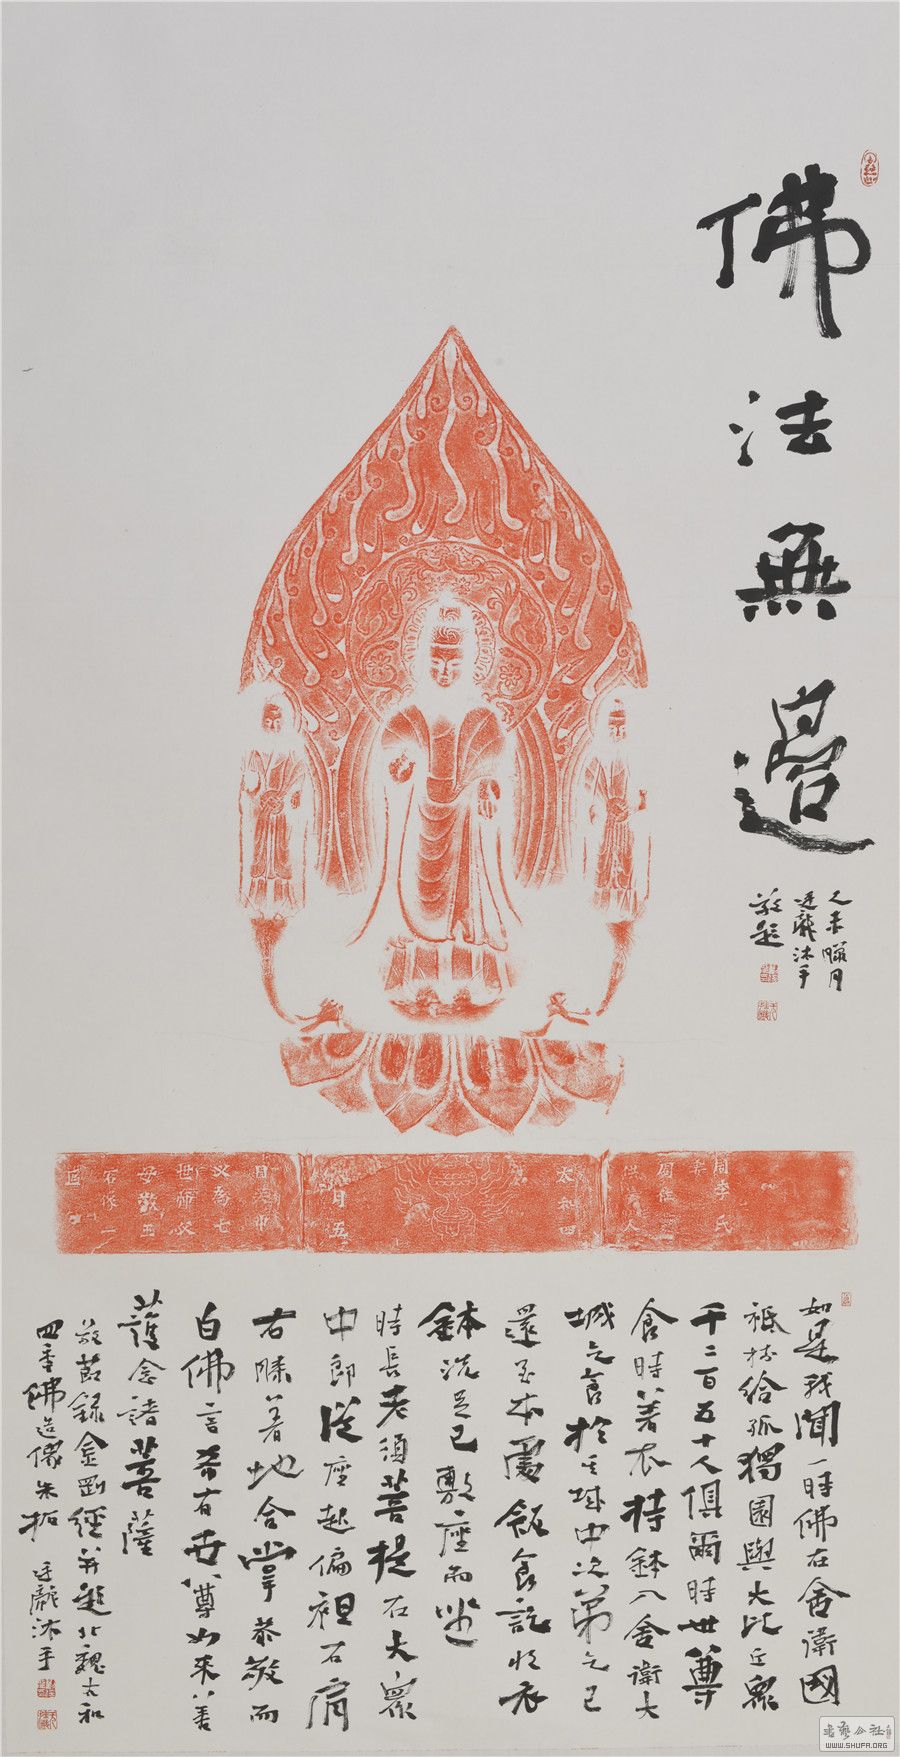 佛法無邊
乙未臘月
龍沐手
敬題
周李氏
供人
太和四
月五
父為七
世師父
母敬立
石像一
區
如是我聞一時佛在舍衛國
祇樹給孤獨園與大比丘眾
千二百五十人俱爾時世尊
食時著衣持鉢入舍衛大
城乞食於其城中次第乞已
還至本處飯食訖收衣
鉢洗足已敷座而坐
時長老須菩提在大眾
中即從座起偏袒右肩
右膝著地合掌恭敬而
白佛言希有世尊如來善
護念諸菩薩
敬節錄金剛經并題北魏太和
四年佛造像朱拓 龍沐手
書藝公社
WWW.SHUFA.ORG